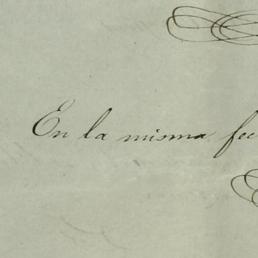 En la misma fec